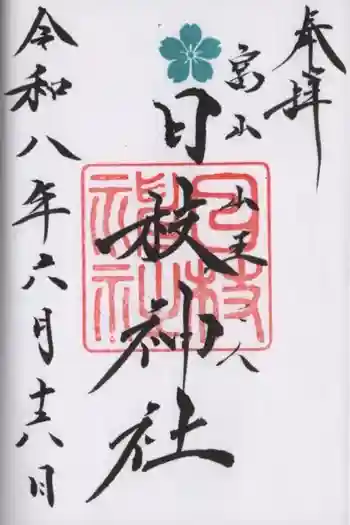 奉拝
富山
山王
日枝神社
日枝神社
令和八年六月十八日